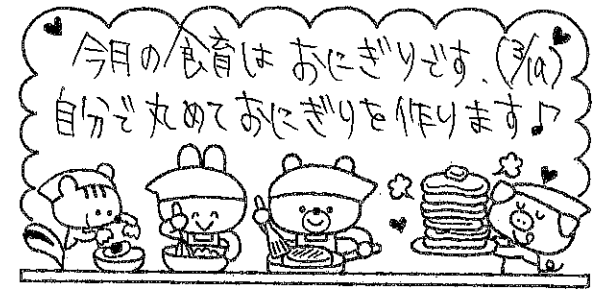 今月の食育は おにぎりです、(3/19)
自分で丸めておにぎりを作ります♪